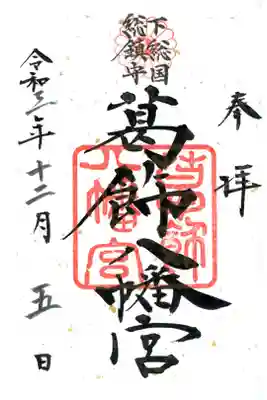 奉拝
下総国
総鎮守
葛飾八幡宮
葛飾
八幡宮
令和三年十二月五日